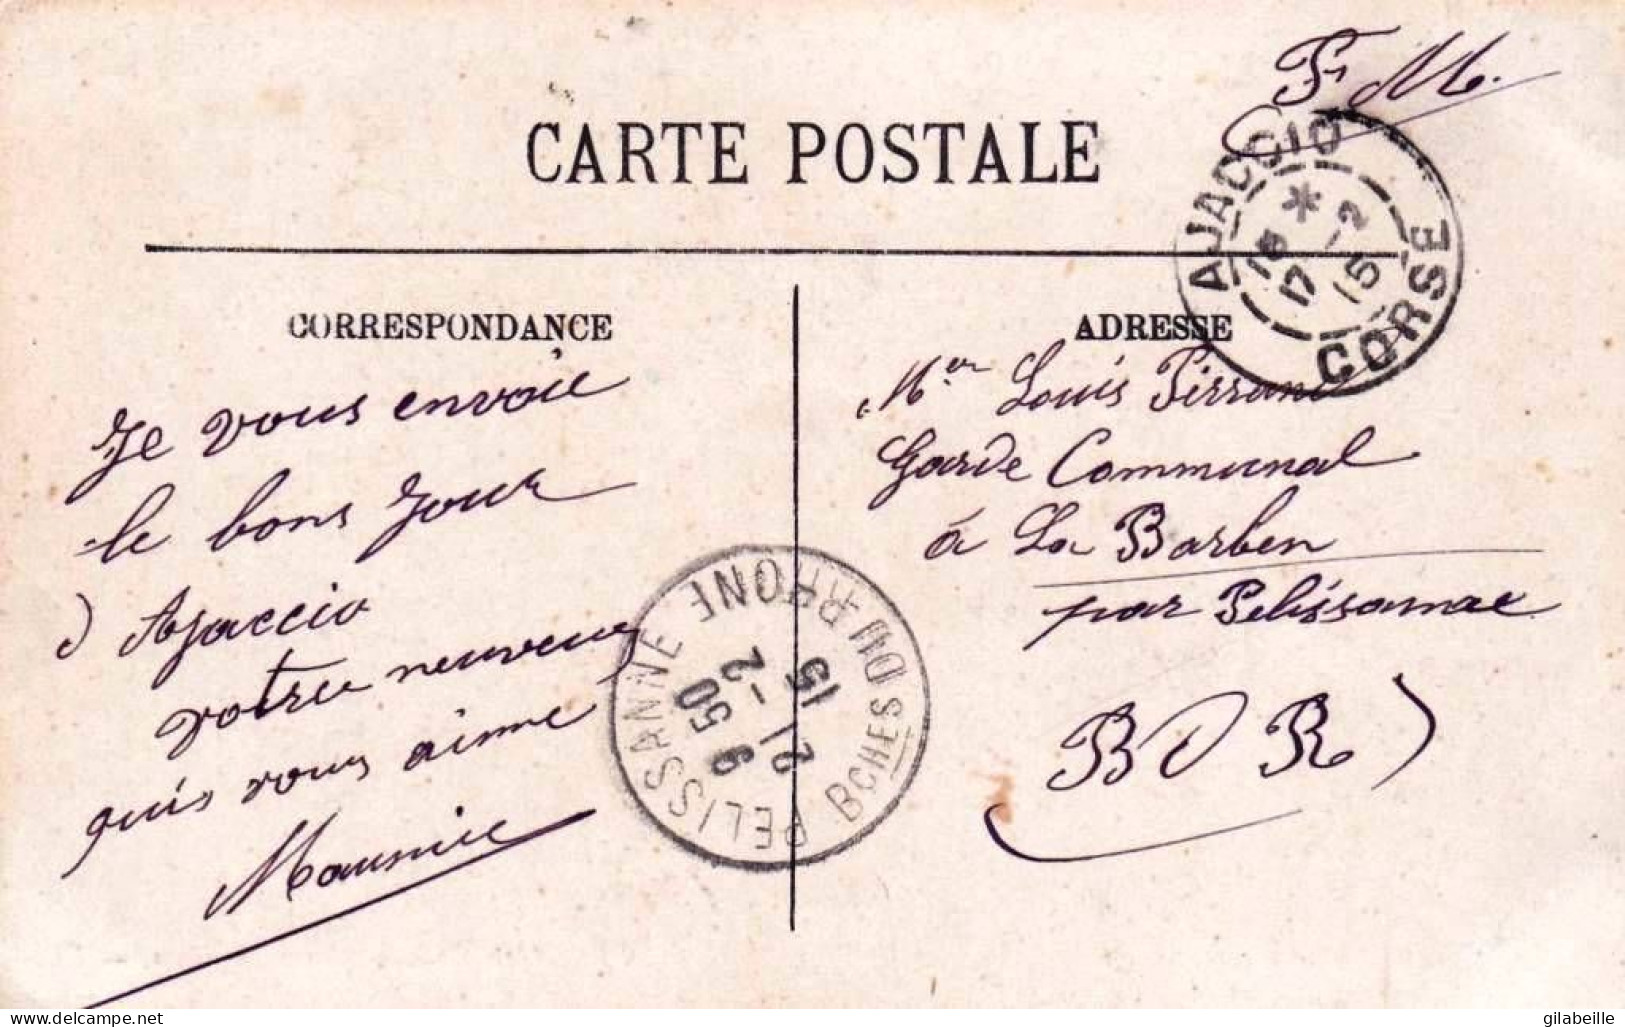 F M.
CARTE POSTALE
AJACCIO CORSE
18 *
17 -2
15
CORRESPONDANCE
ADRESSE
Je vous envoie
le bons Jour
d Ajaccio
votre neuveux
quis vous aime
Maurice
Mer Louis
Garde Communal
á La Barben
par Pelissanne
B D R)
PELISSANNE BCHES DU RHONE
6 50
21 -2
15
gilabeille